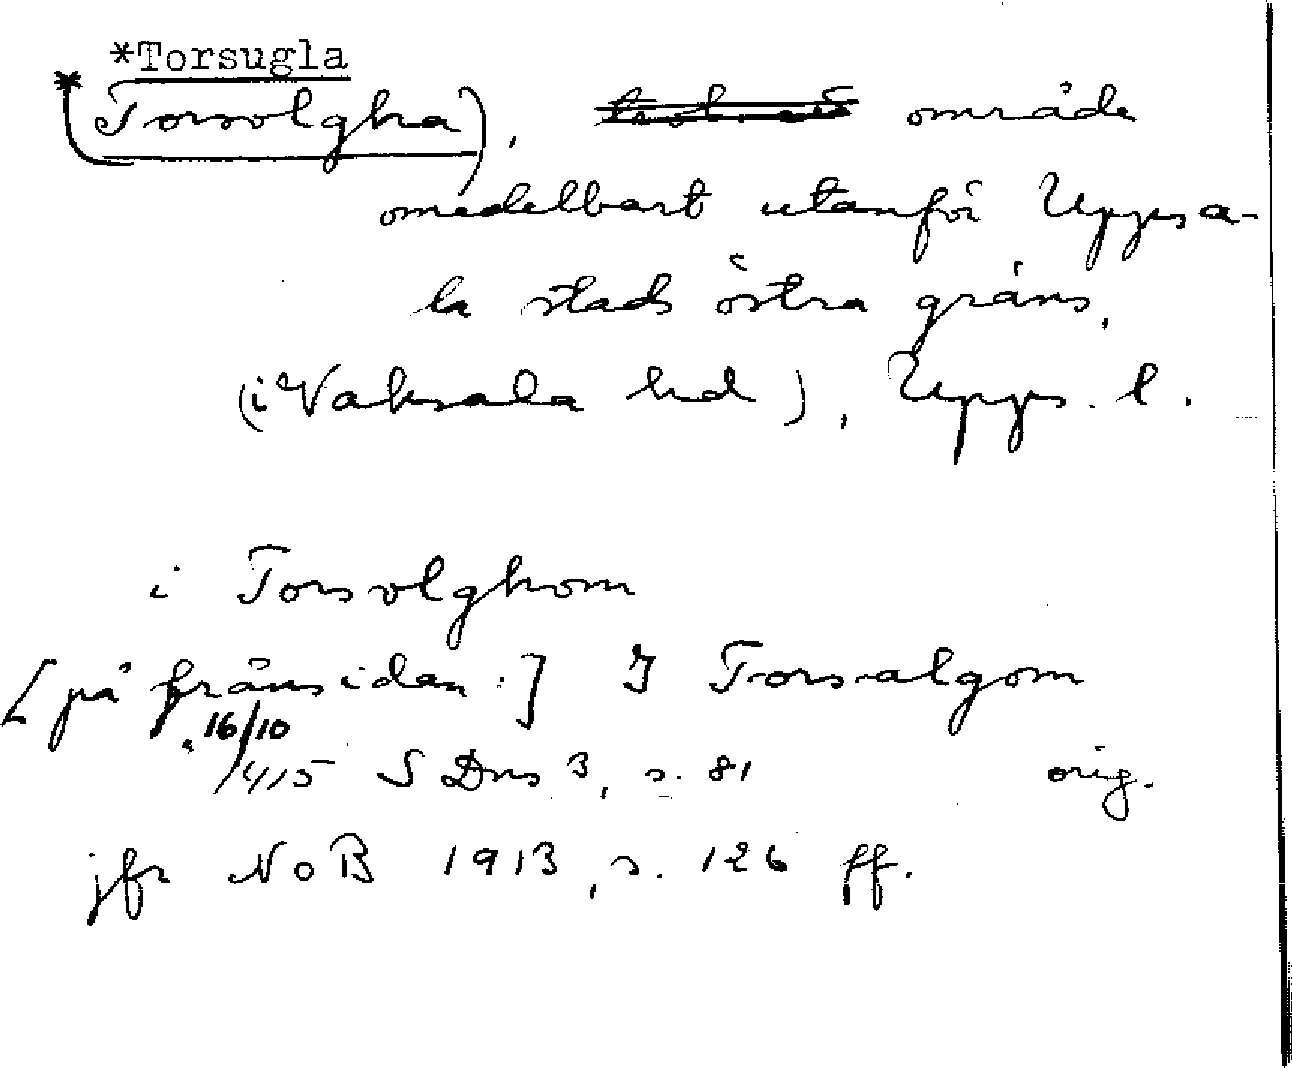 *Torsugla
* (Torsolgha), område
omedelbart utanför Uppsa-
la stads östra gräns,
(i Vaksala hd), Upps. l.
i Torsolghom
[på frånsidan:] I Torsalgom
16/10
1415 SDns 3, s. 81 orig.
jfr NoB 1913, s. 126 ff.